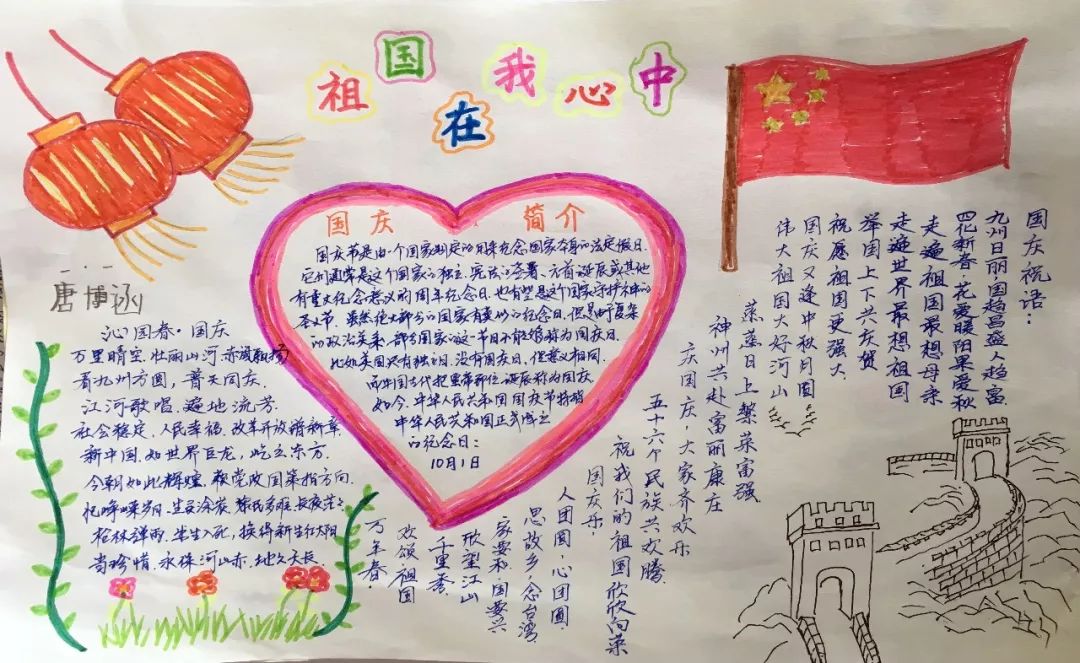 祖国在我心中
国庆 简介
国庆节是由一个国家制定的用来纪念国家本身的法定假日.
它们通常是这个国家的独立、宪法的签署、元首诞辰或其他
有重大纪念意义的周年纪念日.也有些是这个国家守护神的
圣人节.虽然绝大部分的国家有类似的纪念日,但是由于复杂
的政治关系,一部分国家的这一节日不能够称为国庆日.
比如美国只有独立日,没有国庆日,但意义相同.
而中国古代把皇帝即位、诞辰称为国庆.
如今,中华人民共和国国庆节特指
中华人民共和国正式成立
的纪念日:
10月1日
唐博涵
沁园春·国庆
万里晴空,壮丽山河,赤风飘扬
看九州方圆,普天同庆.
江河歌唱.遍地流芳.
社会稳定.人民幸福.改革开放谱新章.
新中国.如世界巨龙,屹立东方.
今朝如此辉煌.
忆峥嵘岁月.生灵涂炭.
枪林弹雨.半生入死,换得新生付太阳
当珍惜.永保河山赤.地久天长.
国庆祝语:
九州日丽,国趋昌盛人趋富
四化新春,花爱暖阳果爱秋
走遍祖国最想母亲
走遍世界最想祖国
举国上下共庆贺
祝愿祖国更强大
国庆又逢中秋月圆
伟大祖国大好河山
蒸蒸日上繁荣富强
神州共赴富丽康庄
庆国庆,大家齐欢乐
五十六个民族共欢腾
祝我们的祖国欣欣向荣
国庆乐.
人团圆,心团圆.
思故乡,念台湾.
家要和国要兴
欣望江山
千里秀
欢颂祖国
万年春.